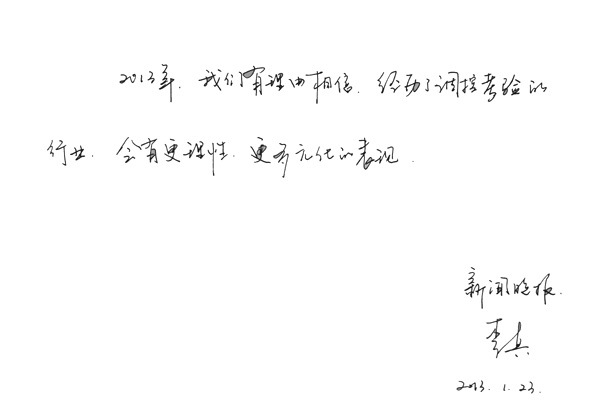 2013年，我们有理由相信，经历了调控考验的
行业，会有更理性、更多元化的表现．
新闻晚报．
李真
2013．1．23．